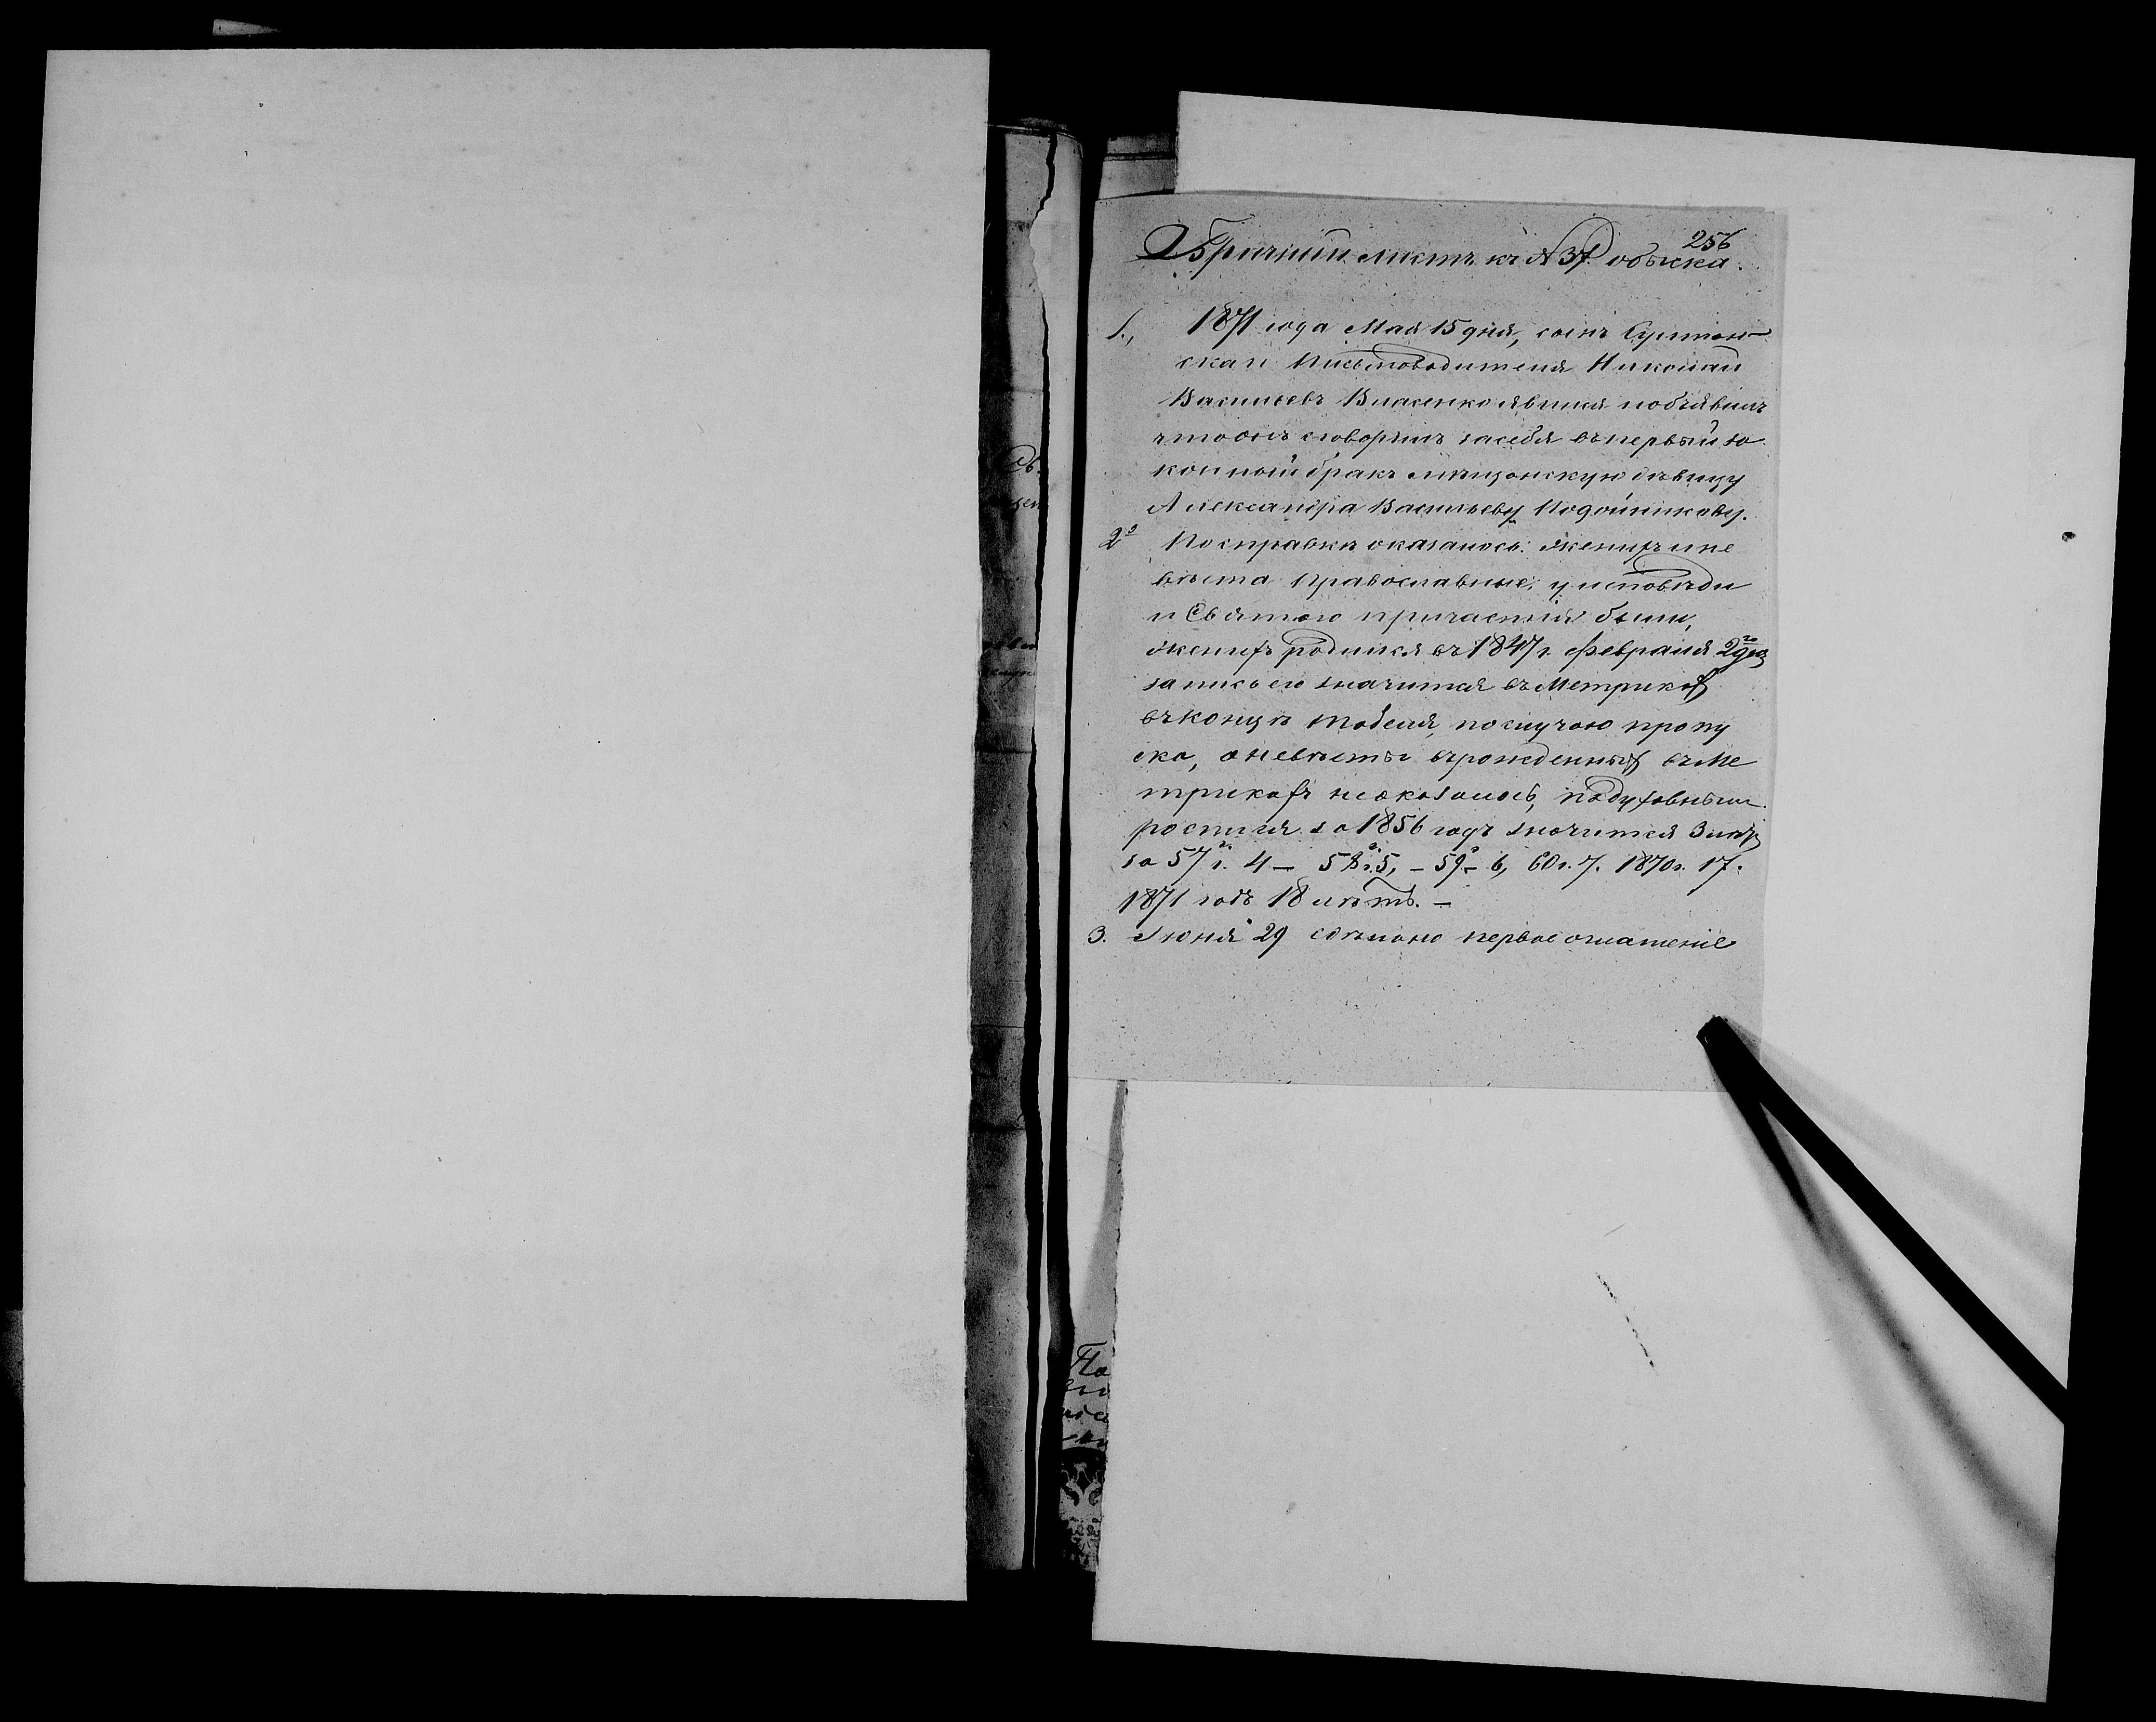 256
Брачный листъ къ № 37 обыска.
1., 1871 года Мая 15 дня, сынъ
скаго Письмоводителя Николай
Васильевъ Власенко явился и объявилъ
что онъ сговорилъ за себя въ первый за
конный бракъ мѣщанскую дѣвицу
Александра Васильеву Подойникову.
2е По справкѣ оказалось: Женихъ и не
вѣста Православные, у исповѣди
и Святого причастія были,
Женихъ родился въ 1847 г. Февраля 2го дня
запись его значится въ Метрикахъ
въ концѣ табеля, по случаю пропу
ска, а невѣсты въ рожденныхъ въ Ме
трикахъ не оказалось, по духовнымъ
росписямъ за 1856 годъ значится 3 лѣтъ
за 57 г. 4 — 58 г. 5, — 59 — 6, 60 г. 7. 1870 г. 17.
1871 годъ 18 лѣтъ. —
3. Іюня 29 сдѣлано первое оглашеніе
По